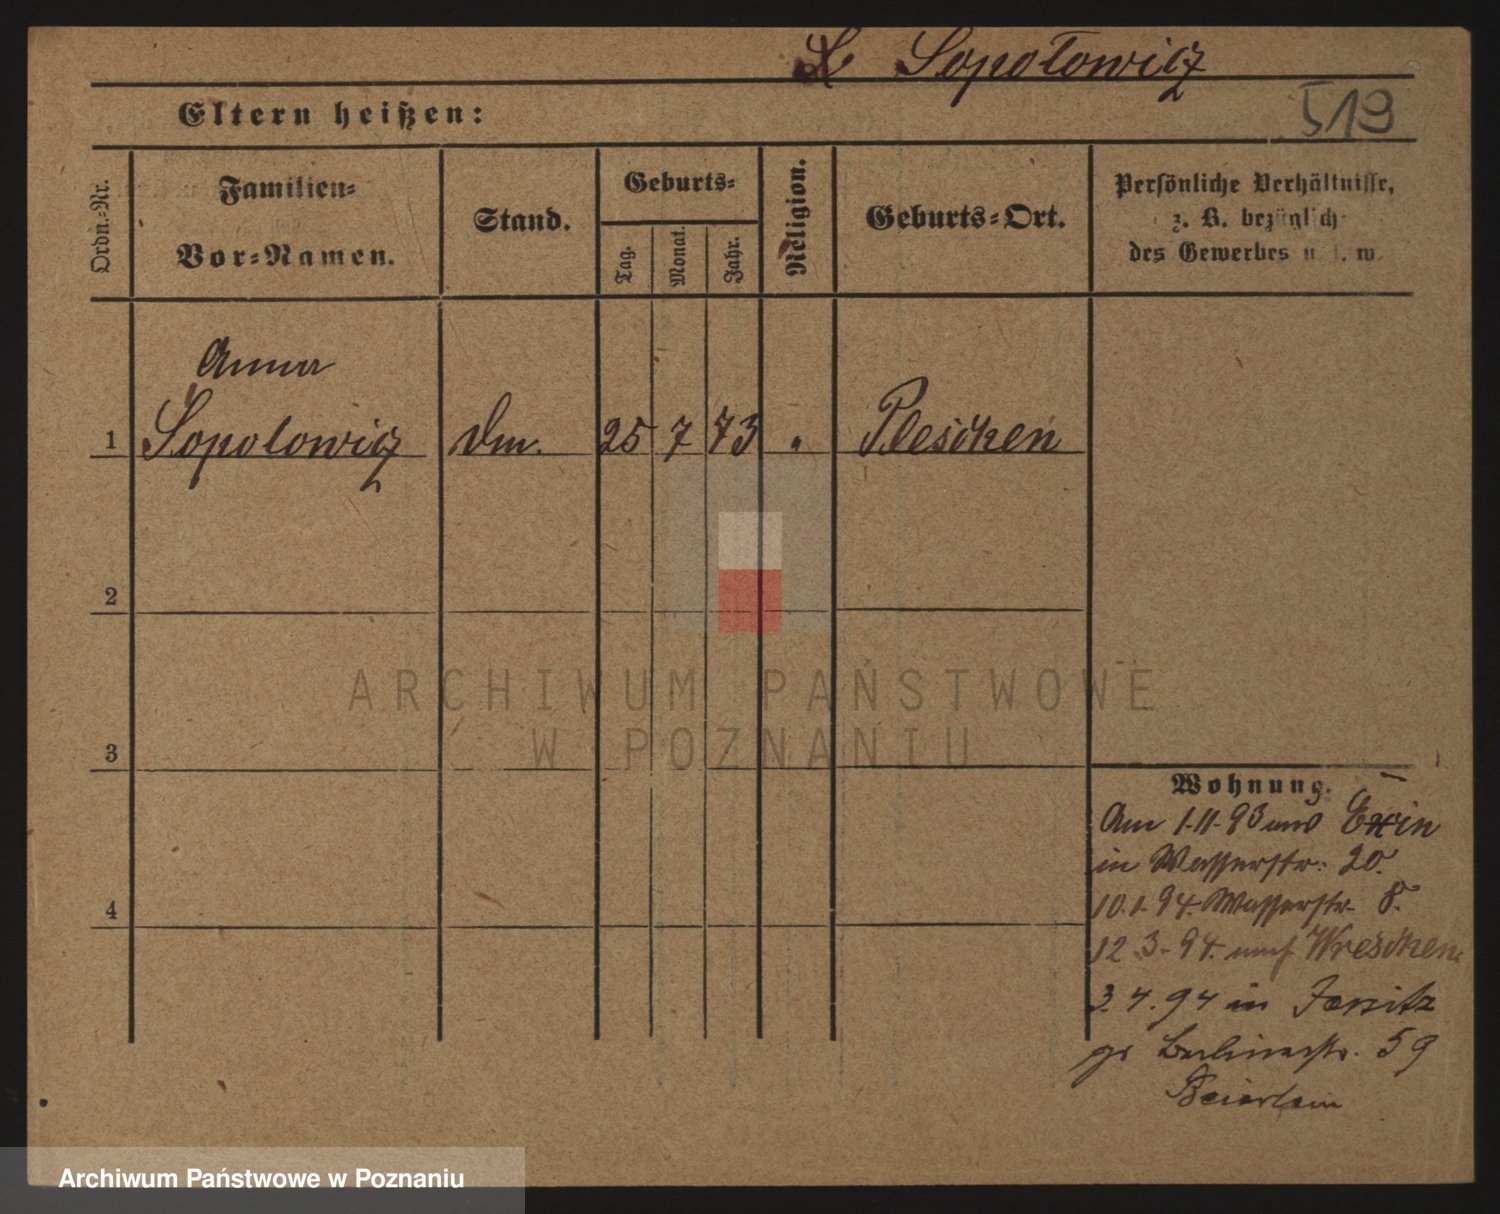 Sopotowicz
519
Eltern heißen:
Ordn.-Nr.
Familien-
Vor-Namen.
Stand.
Geburts-
Tag.
Monat.
Jahr.
Religion.
Geburts-Ort.
Persönliche Verhältnisse,
z. B. bezüglich
des Gewerbes u. s. w.
Anna
1 Sopotowicz Dm. 25 7 73 " Pleschen
2
3
4
Wohnung.
Am 1.11.93 aus Exin
in Wasserstr. 20.
10.1.94. Wasserstr. 8.
12.3.94. nach Wreschen
3.4.94 in Jersitz
gr Berlinerstr. 59
Beierlein
ARCHIWUM PAŃSTWOWE
W POZNANIU
Archiwum Państwowe w Poznaniu